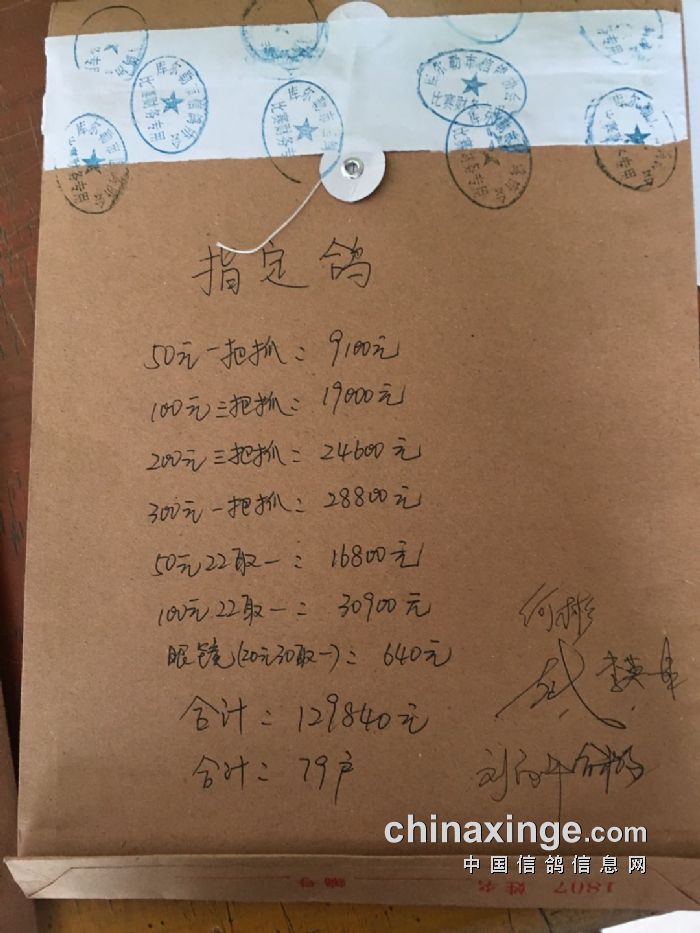 指定鸽
50元一把抓：9100元
100元三把抓：19000元
200元三把抓：24600元
300元一把抓：28800元
50元22取一：16800元
100元22取一：30900元
眼镜(20元30取一)：640元
合计：129840元
合计：79户
何彬
chinaxinge.com
中国信鸽信息网
1807 姓名 编号